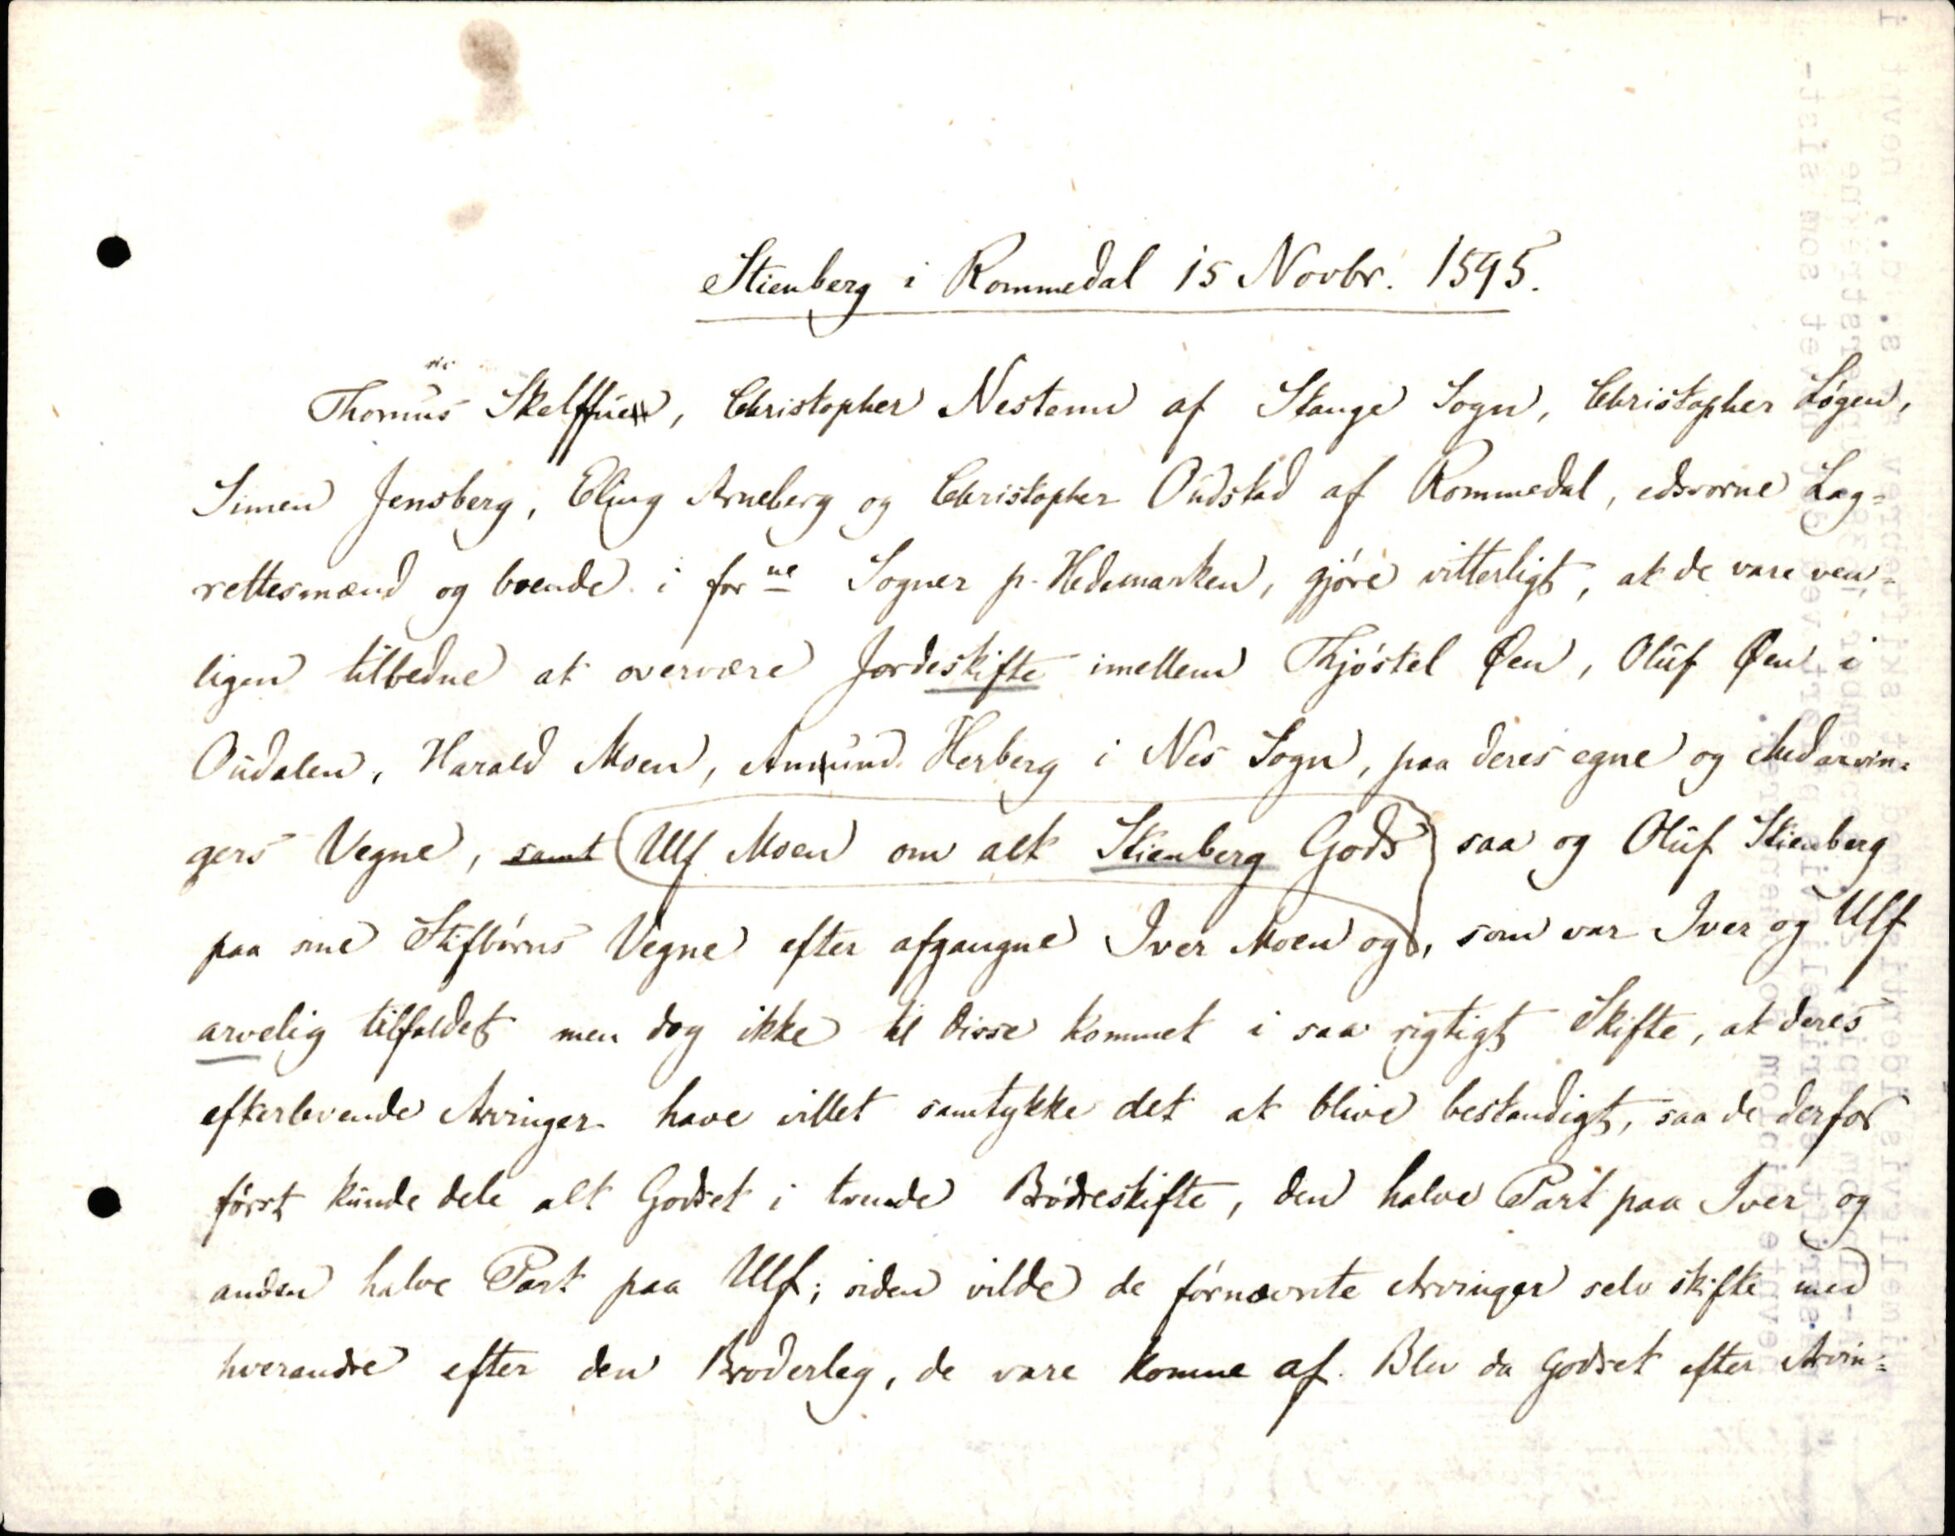 Stienberg i Rommedal 15 Novbr. 1595.
Thomus Skelffue, Christopher Nestenn af Stange Sogn, Christopher Løgen,
Simen Jensberg, Eling Arneberg og Christopher Oudstad af Rommedal, edsvorne Lag=
rettesmænd og boende i forne Sogner p. Hedemarken, gjøre vitterligt, at de vare ven=
ligen tilbedne at overvære Jordeskifte imellem Thjøstel Øen, Oluf Øen i
Oudalen, Harald Moen, Amund Herberg i Nes Sogn, paa deres egne og Medarvin=
gers Vegne, samt Ulf Moen om alt Stienberg Gods saa og Oluf Stienberg
paa sine Stifbørns Vegne efter afgangne Iver Moen og, som var Iver og Ulf
arvelig tilfaldet men dog ikke til disse kommet i saa rigtigt Skifte, at deres
efterlevende Arvinger have villet samtykke det at blive bestandigt, saa de derfor
først kunde dele alt Godset i tvende Brødreskifte, den halve Part paa Iver og
anden halve Part paa Ulf; siden vilde de fornævnte Arvinger selv skifte med
hverandre efter den Broderleg, de vare komne af. Blev da Godset efter Arvin=